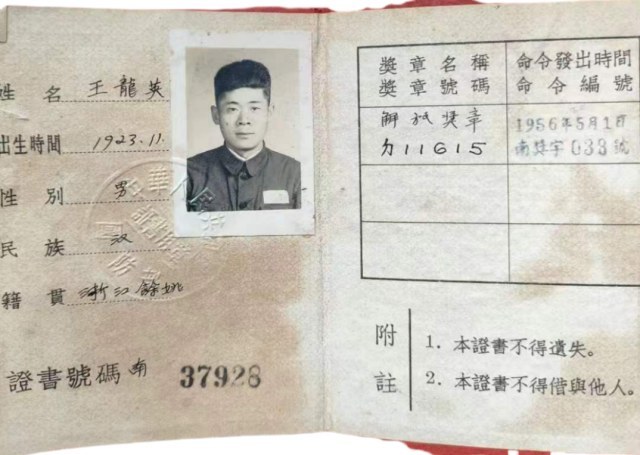 姓 名 王龍英
出生時間 1923.11.
性 別 男
民 族 汉
籍 貫 浙江餘姚
證書號碼 南 37928
獎章名稱
獎章號碼
命令發出時間
命令編號
解放獎章
11615
1956年5月1日
南獎字033號
附註
1. 本證書不得遺失。
2. 本證書不得借與他人。